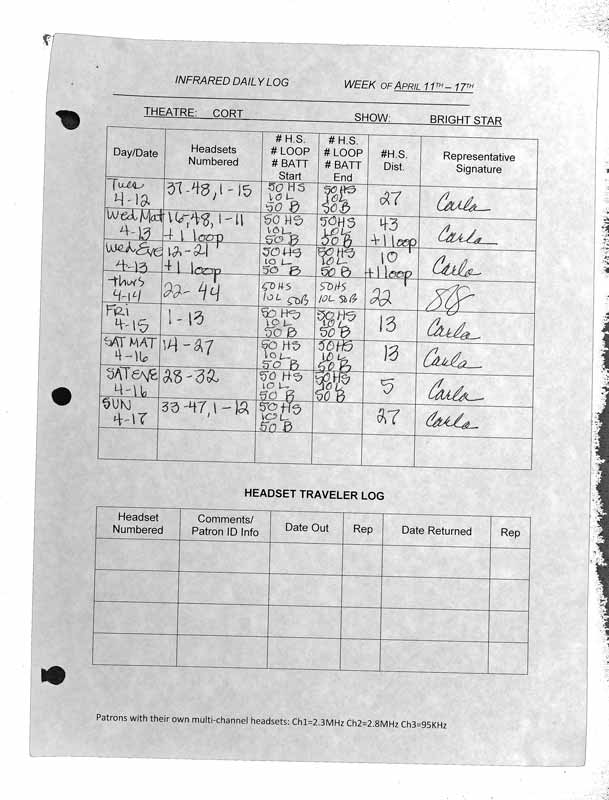 INFRARED DAILY LOG WEEK OF APRIL 11TH – 17TH
THEATRE: CORT SHOW: BRIGHT STAR
Day/Date Headsets Numbered # H.S. # LOOP # BATT Start # H.S. # LOOP # BATT End #H.S. Dist. Representative Signature
Tues 4-12 37-48, 1-15 50 HS 10 L 50 B 50 HS 10 L 50 B 27 Carla
Wed Mat 4-13 16-48, 1-11 +1 loop 50 HS 10 L 50 B 50 HS 10 L 50 B 43 +1 loop Carla
Wed Eve 4-13 12-21 +1 loop 50 HS 10 L 50 B 50 HS 10 L 50 B 10 +1 loop Carla
Thurs 4-14 22-44 50 HS 10 L 50 B 50 HS 10 L 50 B 22
FRI 4-15 1-13 50 HS 10 L 50 B 50 HS 10 L 50 B 13 Carla
SAT MAT 4-16 14-27 50 HS 10 L 50 B 50 HS 10 L 50 B 13 Carla
SAT EVE 4-16 28-32 50 HS 10 L 50 B 50 HS 10 L 50 B 5 Carla
SUN 4-17 33-47, 1-12 50 HS 10 L 50 B 27 Carla
HEADSET TRAVELER LOG
Headset Numbered Comments/ Patron ID Info Date Out Rep Date Returned Rep
Patrons with their own multi-channel headsets: Ch1=2.3MHz Ch2=2.8MHz Ch3=95KHz